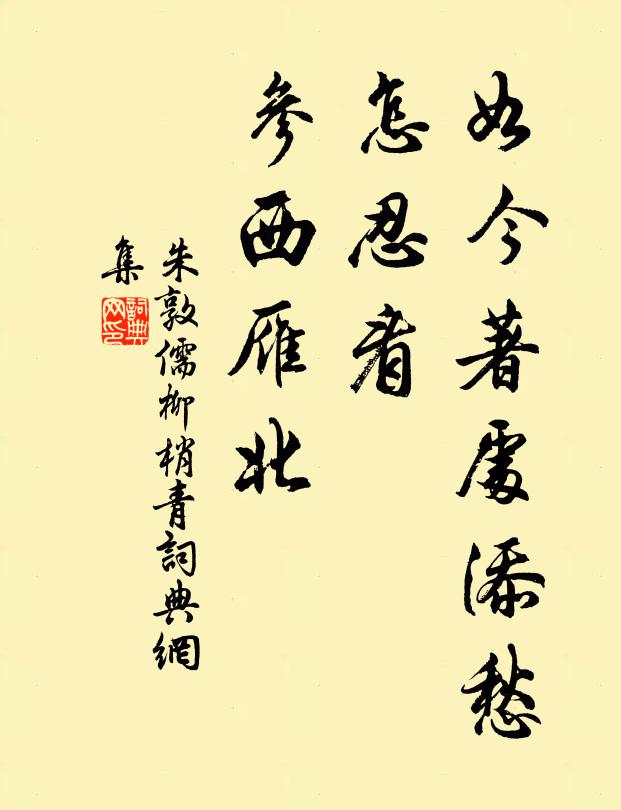 如今著處添愁
怎忍看
參西雁北
朱敦儒柳梢青詞典網
集
詞典网印